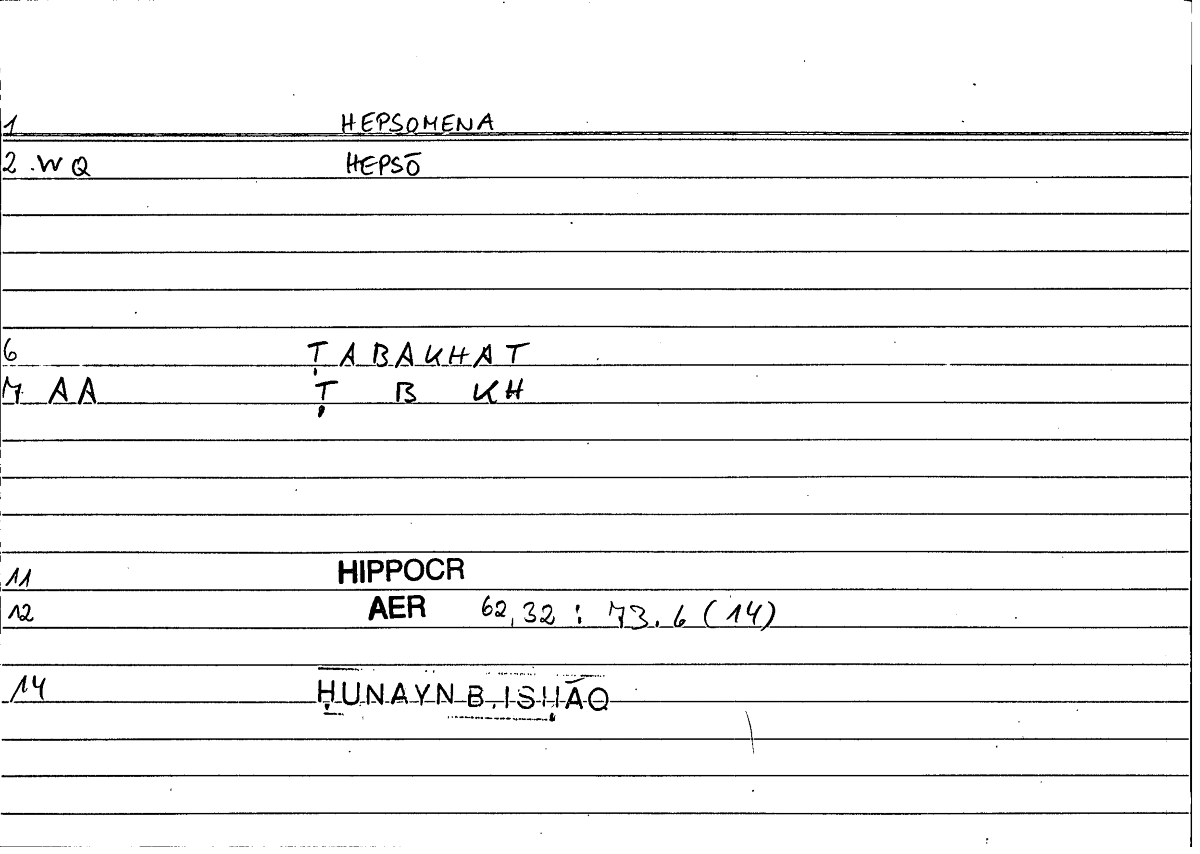 1 HEPSOMENA
2 .WQ HEPSŌ
6 ṬABAKHAT
7 AA Ṭ B KH
11 HIPPOCR
12 AER 62,32 : 73.6 (14)
14 ḤUNAYN B. ISḤĀQ